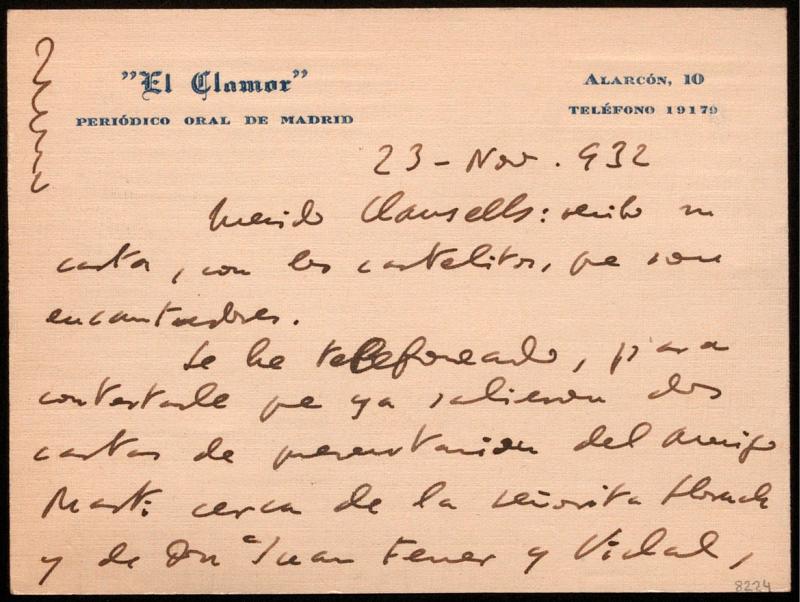 "El Clamor"
PERIÓDICO ORAL DE MADRID
ALARCÓN, 10
TELÉFONO 19179
23 - Nov. 932
Querido Clausells: recibo su
carta, con los cartelitos, que son
encantadores.
Le he telefoneado, para
contestarle que ya salieron dos
cartas de presentación del amigo
Marti cerca de la señorita
y de Dn Juan Ferrer y Vidal,
8224